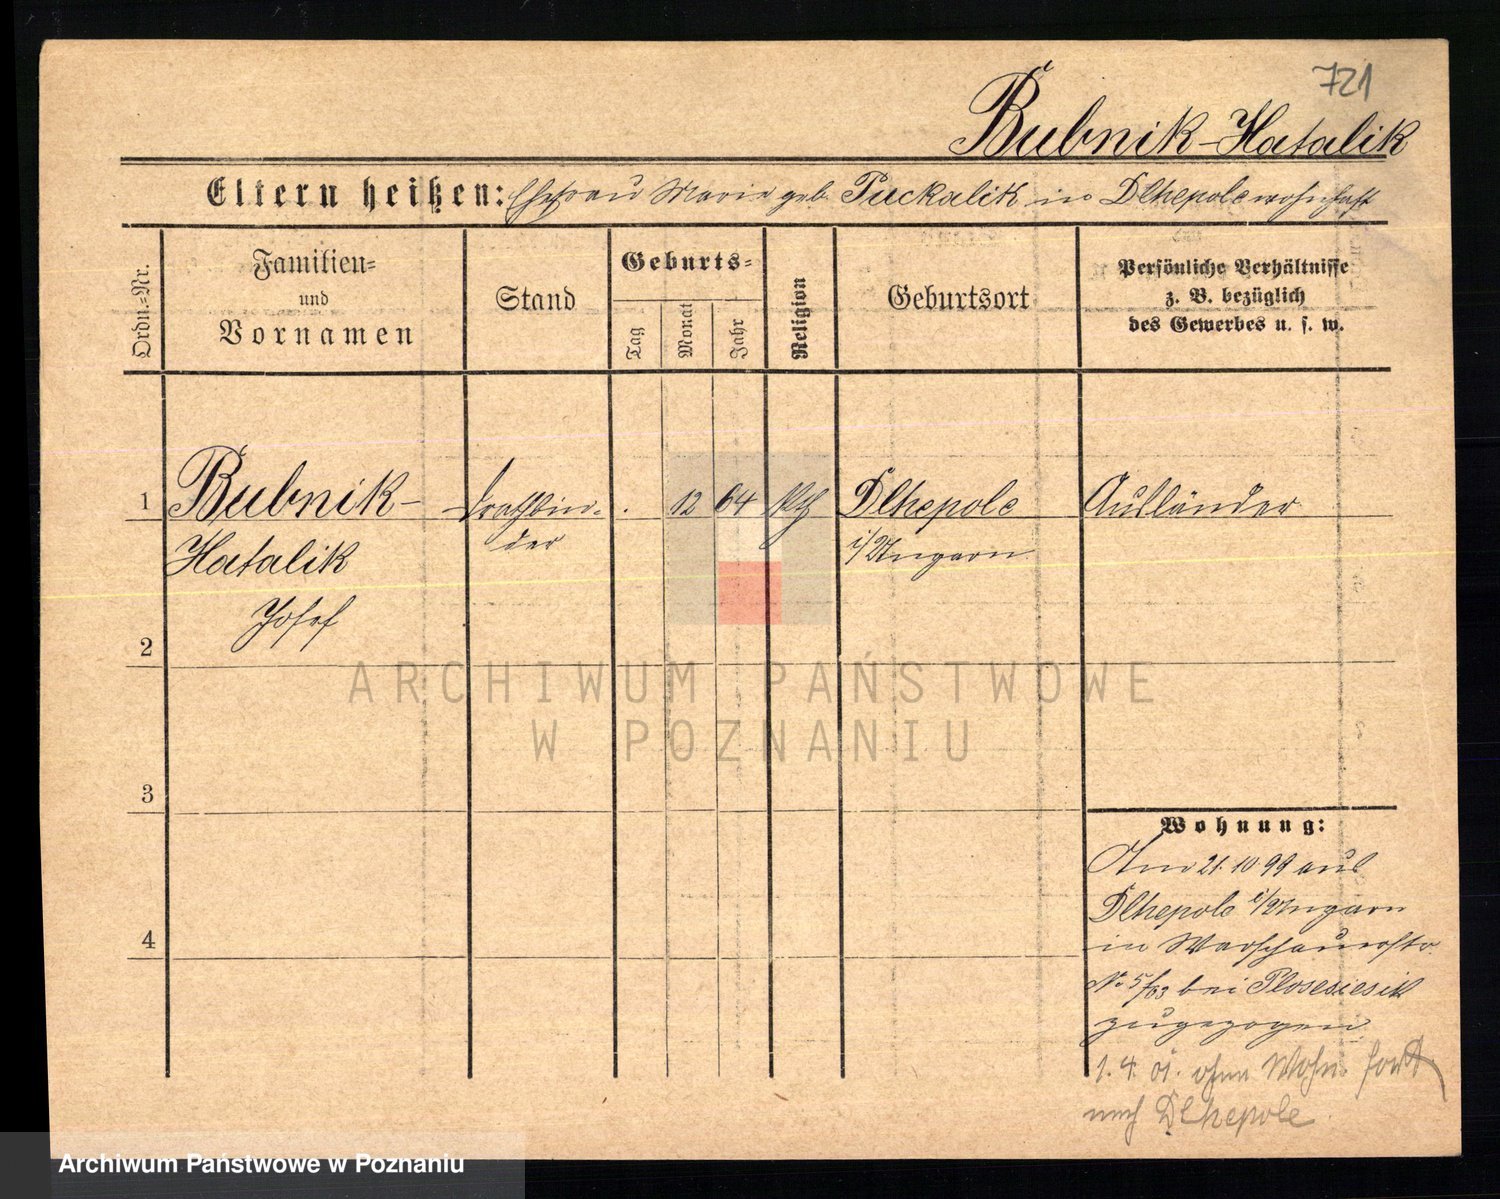 721
Bubnik-Hatalik
Eltern heißen: Ehefrau Marie geb. Puckalik in Dlhepole wohnhaft
Ordn.=Nr.
Familien=
und
Vornamen
Stand
Geburts=
Tag
Monat
Jahr
Religion
Geburtsort
Persönliche Verhältnisse
z. B. bezüglich
des Gewerbes u. s. w.
1 Bubnik- Drathbin= . 12 64 kth Dlhepole Ausländer
Hatalik der i/Ungarn
Josef
2
3
4
Wohnung:
Am 21.10.99 aus
Dlhepole i/Ungarn
in Warschauerstr.
No 5/63 bei
zugezogen
1. 4. 01. ohne Wohn. fort
nach Dlhepole
ARCHIWUM PAŃSTWOWE
W POZNANIU
Archiwum Państwowe w Poznaniu